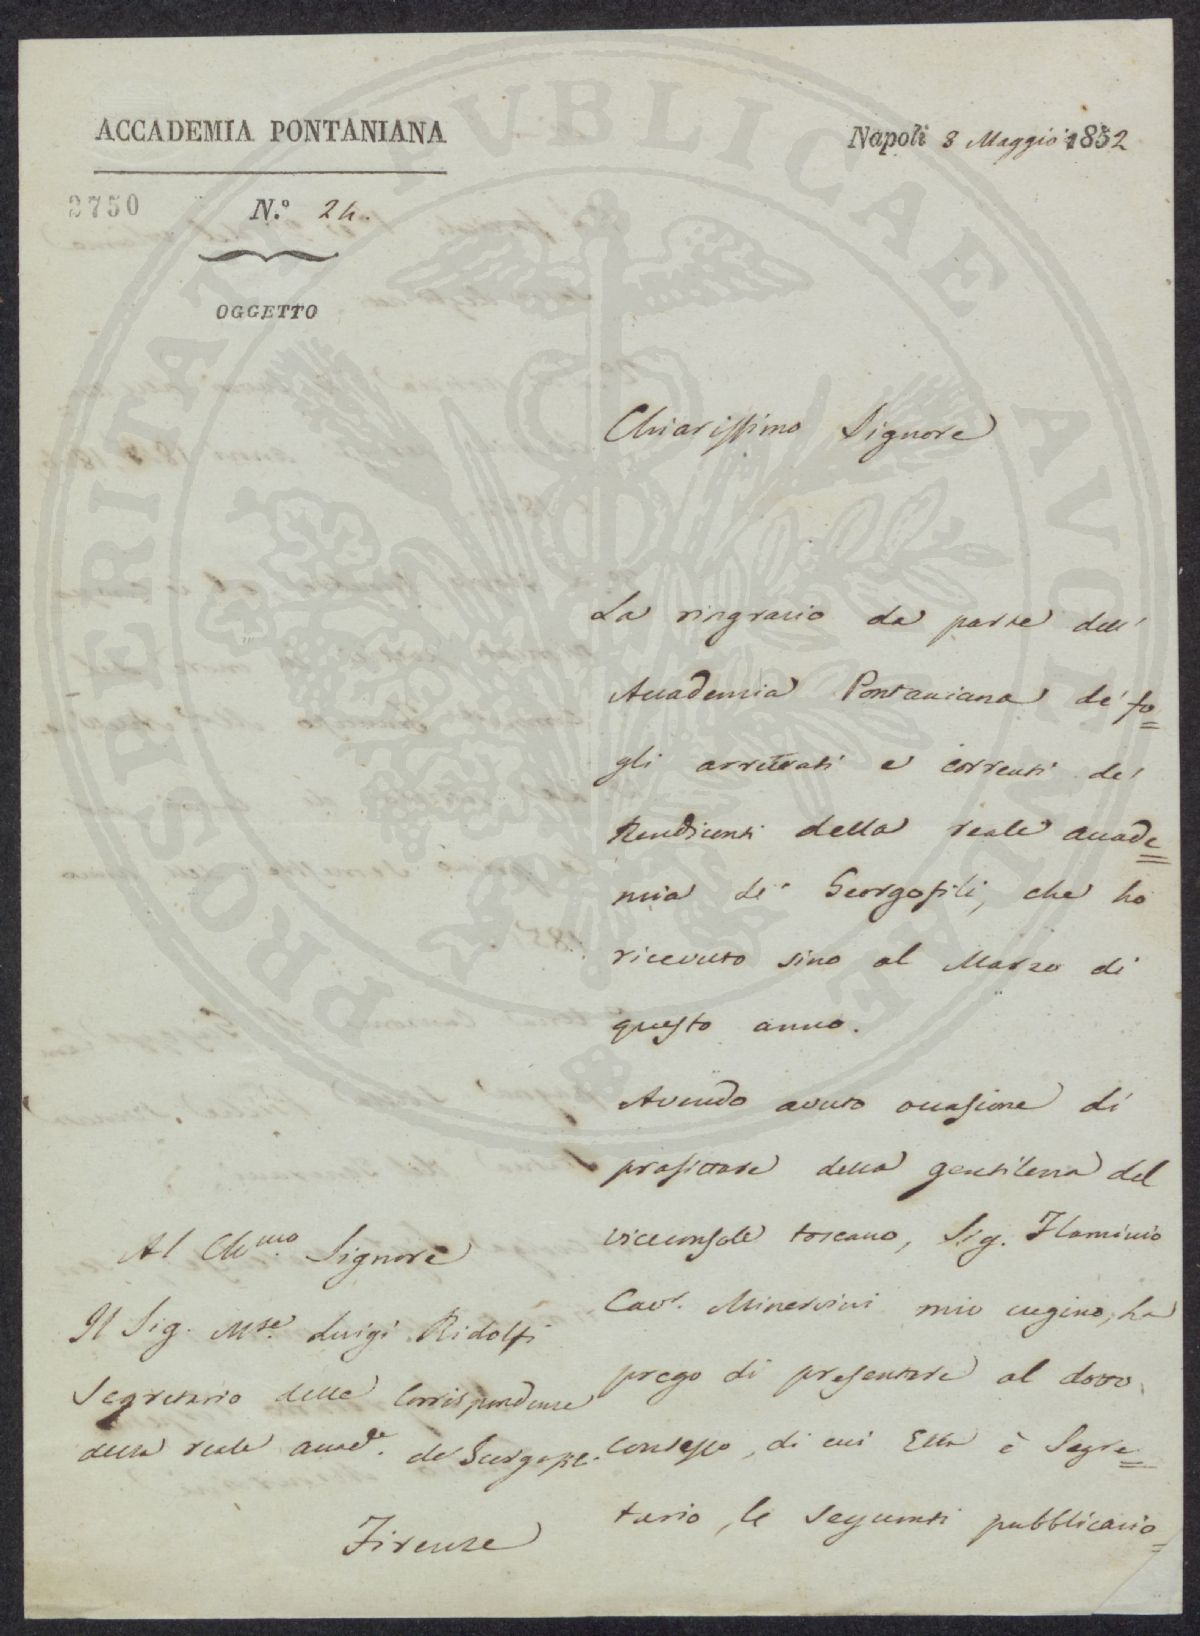 ACCADEMIA PONTANIANA
Napoli 8 Maggio 1852
2750
N.º 24.
OGGETTO
Chiarissimo Signore
La ringrazio da parte dell'
Accademia Pontaniana de' fo=
gli arretrati e correnti de'
Rendiconti della reale accade=
mia de' Georgofili, che ho
ricevuto sino al Marzo di
questo anno.
Avendo avuto occasione di
profittare della gentilezza del
viceconsole toscano, Sig. Flaminio
Cavr. Minervini mio cugino, La
prego di presentare al dotto
Consesso, di cui Ella è Segre=
tario, le seguenti pubblicazio=
Al Ch.mo Signore
Il Sig. Mse. Luigi Ridolfi
Segretario delle Corrispondenze
della reale accad.e de' Georgofili.
Firenze
PROSPERITATI PVBLICAE AVGENDAE